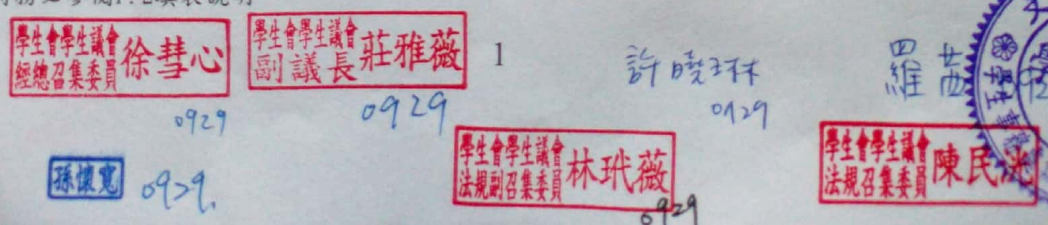 學生會學生議會
經總召集委員 徐彗心
0929
學生會學生議會
副議長 莊雅薇
0929
1
許曉琳
0929
羅
孫懷寬 0929.
學生會學生議會
法規副召集委員 林玳薇
0929
學生會學生議會
法規召集委員 陳民洮